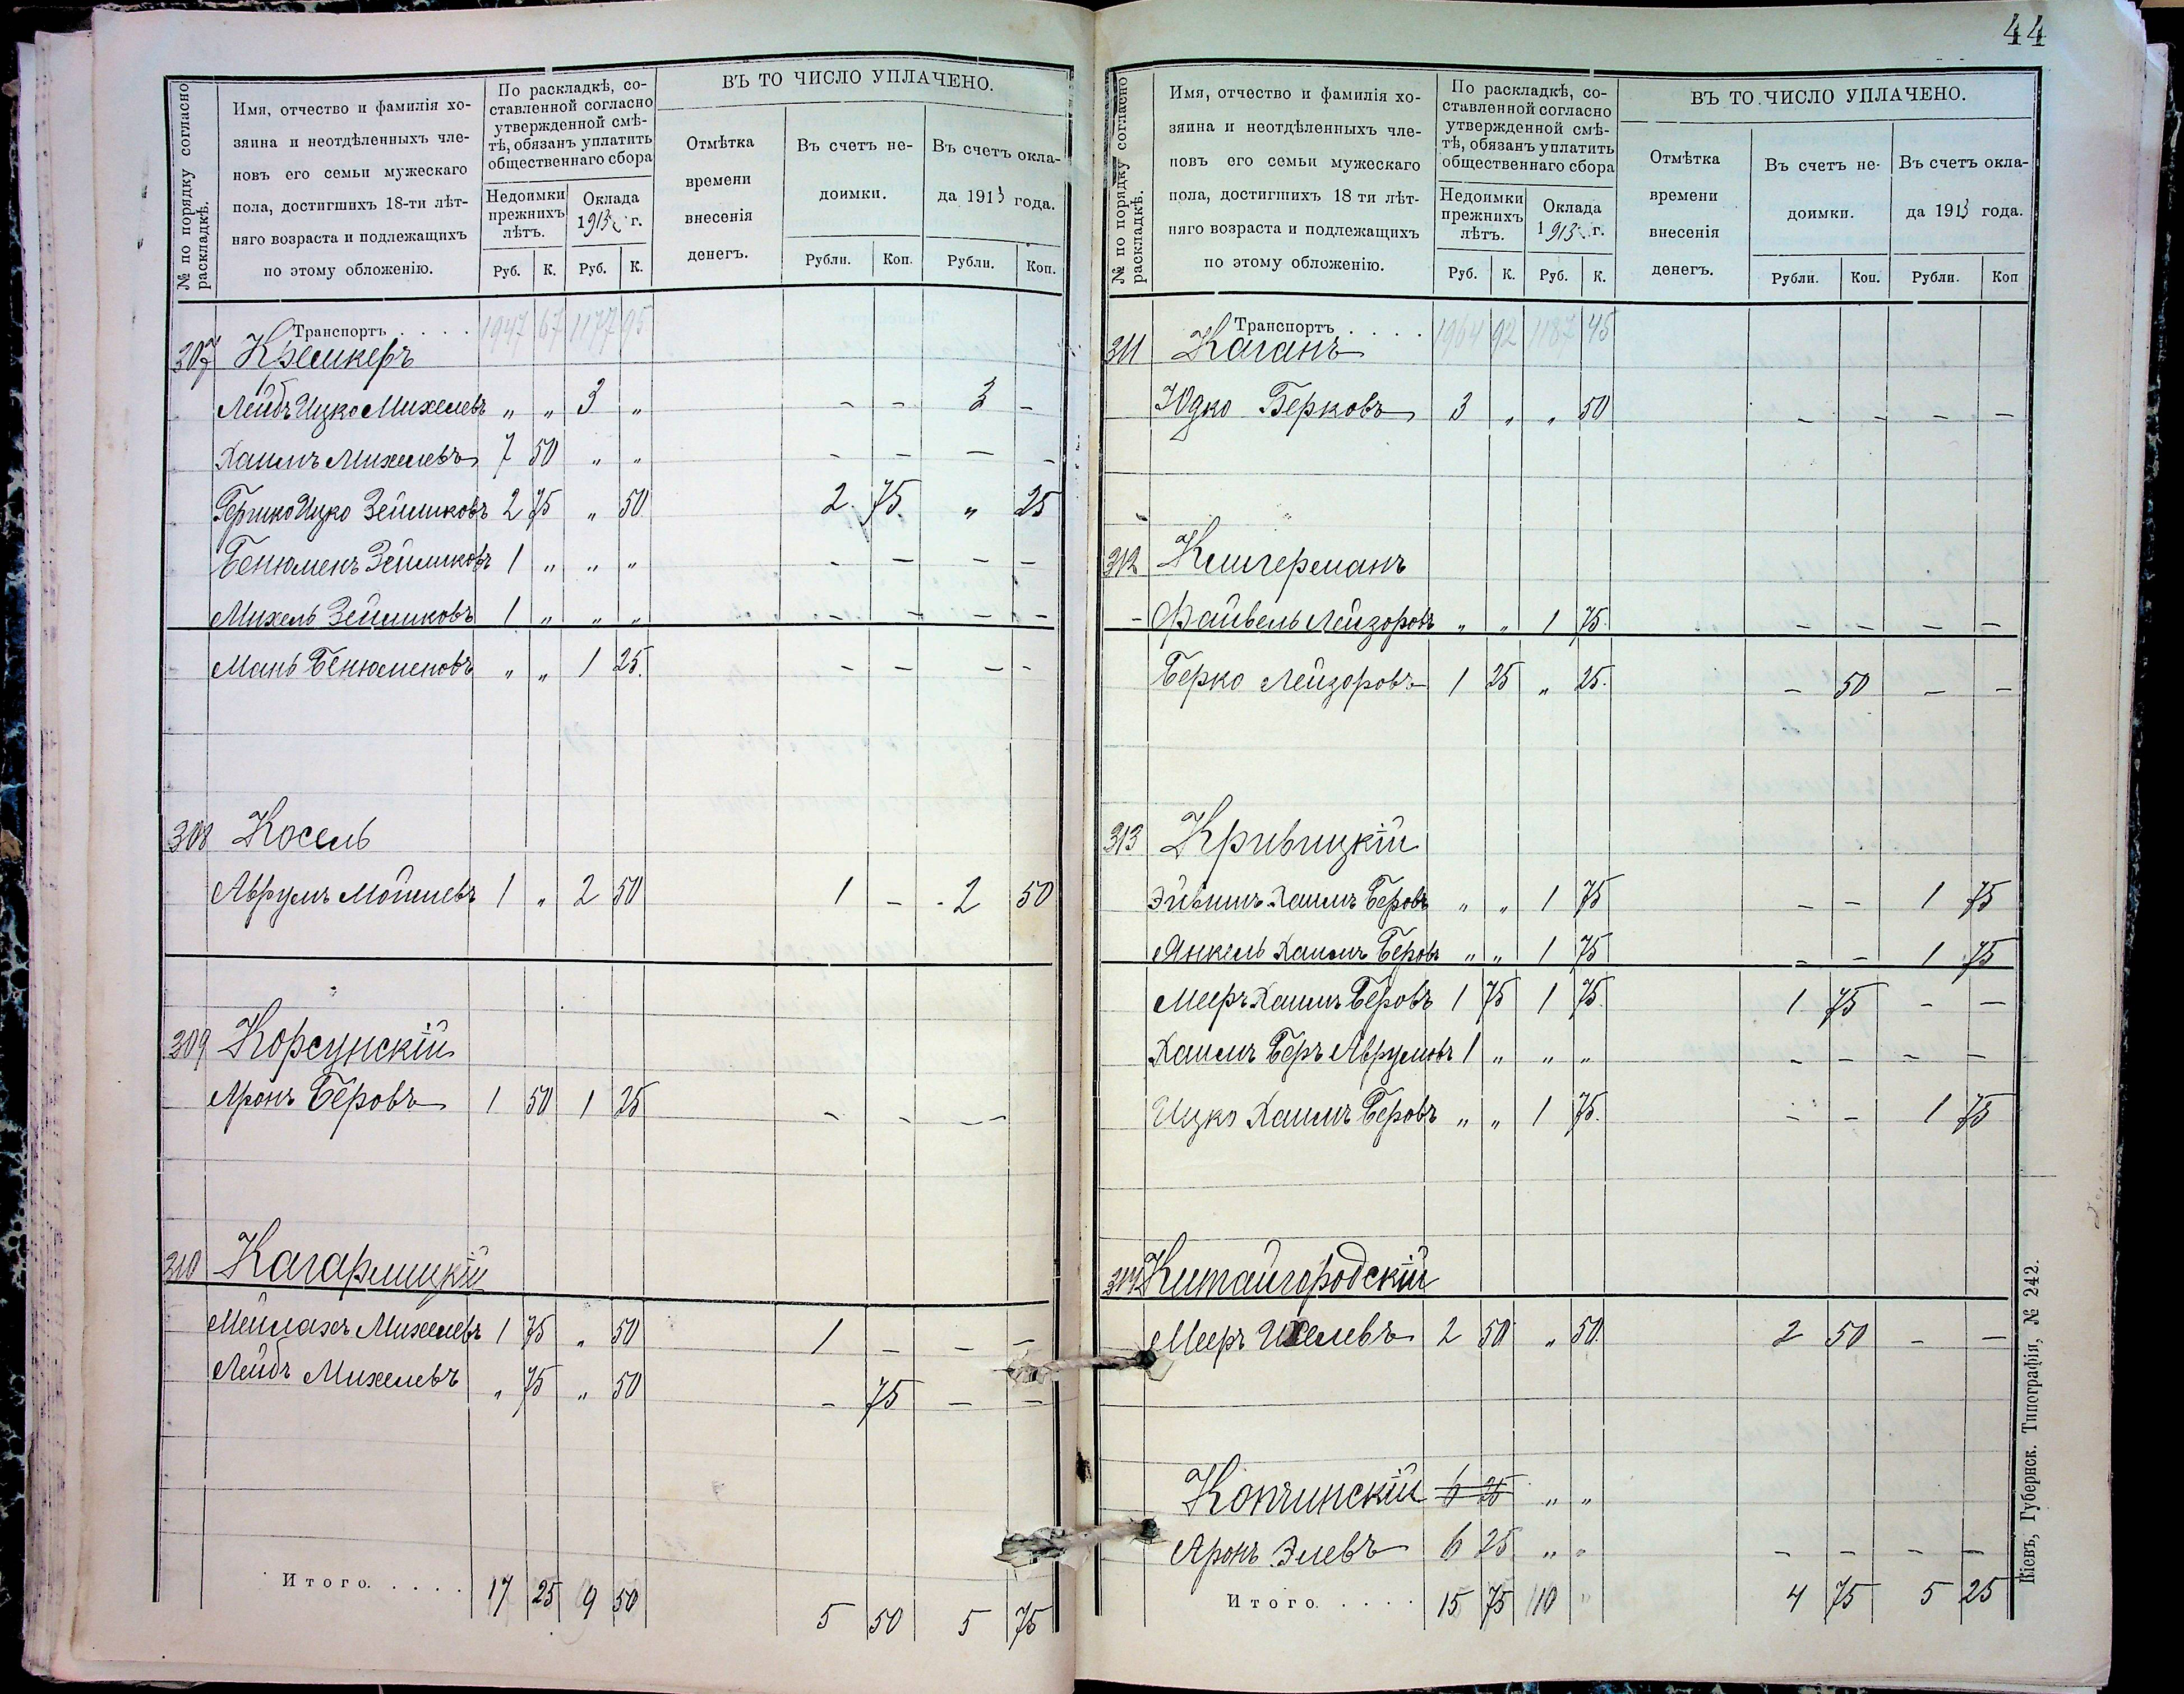 44
№ по порядку согласно раскладкѣ.
Имя, отчество и фамилія хо-
зяина и неотдѣленныхъ чле-
новъ его семьи мужескаго
пола, достигшихъ 18-ти лѣт-
няго возраста и подлежащихъ
по этому обложенію.
По раскладкѣ, со-
ставленной согласно
утвержденной смѣ-
тѣ, обязанъ уплатить
общественнаго сбора
Недоимки прежнихъ лѣтъ.
Оклада 1913 г.
Руб. К. Руб. К.
ВЪ ТО ЧИСЛО УПЛАЧЕНО.
Отмѣтка
времени
внесенія
денегъ.
Въ счетъ не-
доимки.
Въ счетъ окла-
да 1913 года.
Рубли. Коп. Рубли. Коп.
Транспортъ . . . . 1947 67 1177 95
307 Кремкеръ
Лейбъ Ицко Михелевъ „ „ 3 „ – – 3 –
Хаимъ Михелевъ 7 50 „ „ – – – –
Гершко Ицко Зейликовъ 2 75 „ 50 2 75 „ 25
Бенюменъ Зейликовъ 1 „ „ „ – – – –
Михель Зейликовъ 1 „ „ „ – – – –
Мань Бенюменовъ „ „ 1 25. – – – –
308 Косель
Аврумъ Мошневъ 1 „ 2 50 1 – 2 50
309 Корсунскій
Аронъ Беровъ 1 50 1 25 – – – –
310 Кагарлицкій
Мейлахъ Михелевъ 1 75 „ 50 1 – – –
Лейбъ Михелевъ „ 75 „ 50 – 75 – –
Итого. . . . . 17 25 9 50 5 50 5 75
№ по порядку согласно раскладкѣ.
Имя, отчество и фамилія хо-
зяина и неотдѣленныхъ чле-
новъ его семьи мужескаго
пола, достигшихъ 18 ти лѣт-
няго возраста и подлежащихъ
по этому обложенію.
По раскладкѣ, со-
ставленной согласно
утвержденной смѣ-
тѣ, обязанъ уплатить
общественнаго сбора
Недоимки прежнихъ лѣтъ.
Оклада 1913 г.
Руб. К. Руб. К.
ВЪ ТО ЧИСЛО УПЛАЧЕНО.
Отмѣтка
времени
внесенія
денегъ.
Въ счетъ не-
доимки.
Въ счетъ окла-
да 1913 года.
Рубли. Коп. Рубли. Коп
Транспортъ . . . . 1964 92 1187 45
311 Каганъ
Юдко Берковъ 3 „ „ 50 – – – –
312 Клигерманъ
Файвель Лейзоровъ „ „ 1 75. – – – –
Берко Лейзоровъ 1 25 „ 25. – 50 – –
313 Кривицкій
Хаимъ Беровъ „ „ 1 75 – – 1 75
Янкель Хаимъ Беровъ „ „ 1 75 – – 1 75
Мееръ Хаимъ Беровъ 1 75 1 75. 1 75 – –
Хаимъ Беръ Аврумовъ 1 „ „ „ – – – –
Ицко Хаимъ Беровъ „ „ 1 75. – – 1 75
314 Китайгородскій
Мееръ Ихелевъ 2 50 „ 50. 2 50 – –
Копчинскій 6 25 „ „
Аронъ Элевъ 6 25 „ „ – – – –
Итого. . . . . 15 75 10 „ 4 75 5 25
Кіевъ, Губернск. Типографія, № 242.